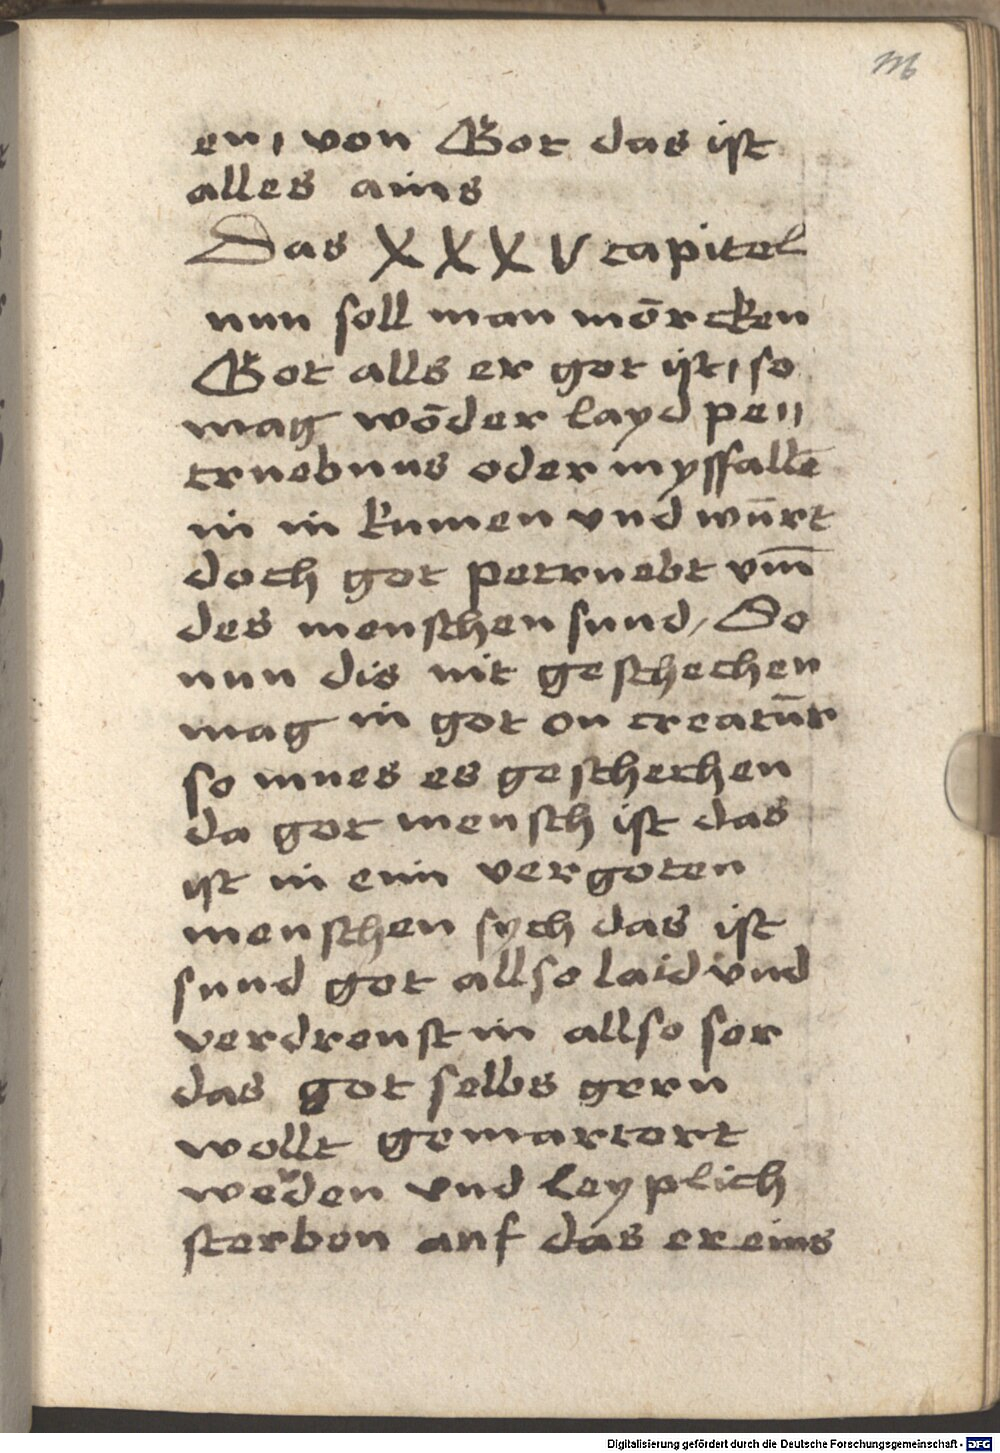 m
en, von Got das ist
alles ains
Das XXXV capitel
nun soll man mōrcken
Got alls er got ist, so
mag wōder layd pe//
truebnus oder myssfallē
in in kumen vnd wūrt
doch got petruebt vm̄
des menschen sund / So
nun dis nit geschechen
mag in got on creatūr
so mues es geschechen
da got mensch ist das
ist in eim vergoten
menschen sych das ist
sund got allso laid vnd
verdreust in allso ser
das got selbs gern
wollt gemartert
werden vnd leyplich
sterben auf das er eins
Digitalisierung gefördert durch die Deutsche Forschungsgemeinschaft - DFG